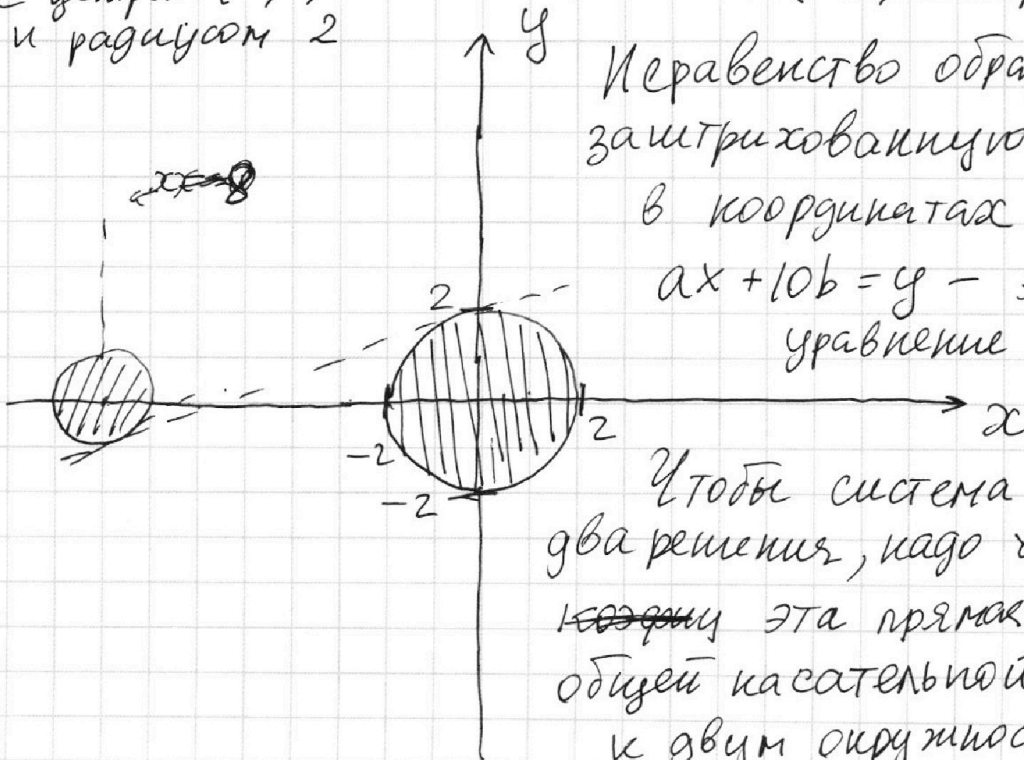 и радиусом 2
y
Неравенство обра
заштрихованную
в координатах
ax + 10b = y —
уравнение
2
-2
2
x
-2
Чтобы система
два решения, надо ч
эта прямая
общей касательной
к двум окружнос